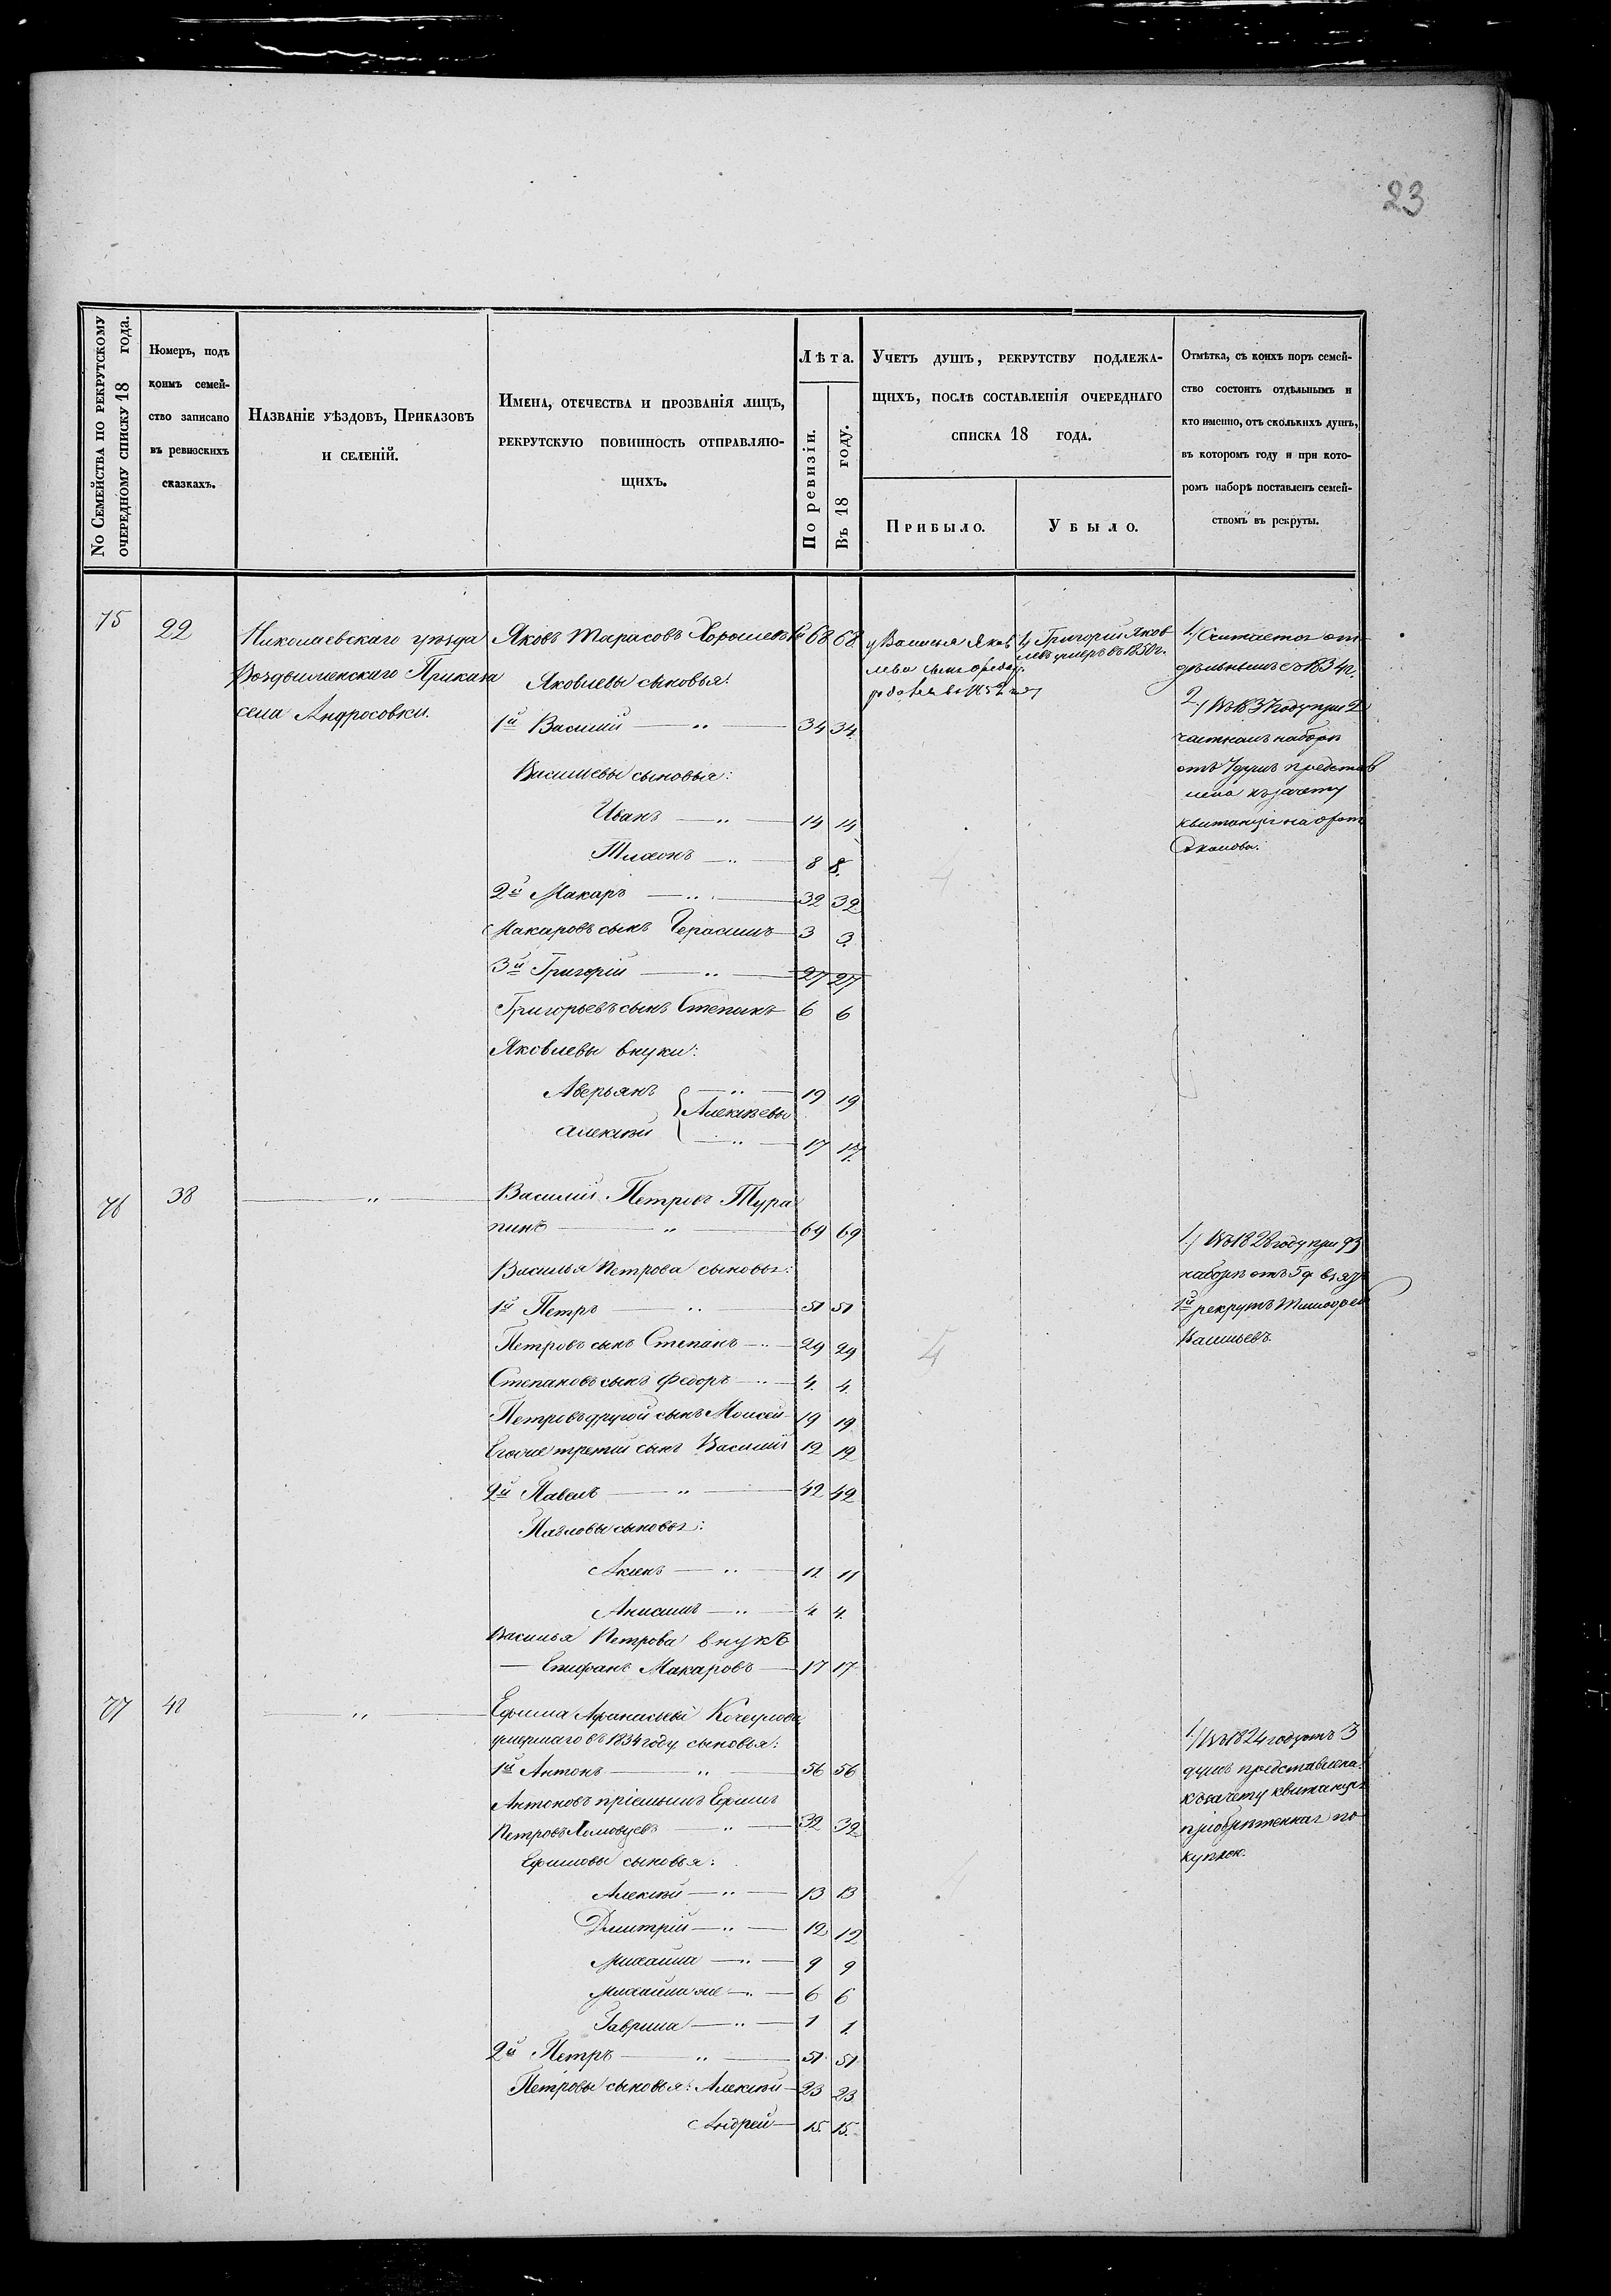 23
No Семейства по рекрутскому
очередному списку 18 года.
Номеръ, подъ
коимъ семей-
ство записано
въ ревизскихъ
сказкахъ.
Названіе уѣздовъ, Приказовъ
и селеній.
Имена, отечества и прозванія лицъ,
рекрутскую повинность отправляю-
щихъ.
Лѣта.
По ревизіи.
Въ 18 году.
Учетъ душъ, рекрутству подлежа-
щихъ, послѣ составленія очереднаго
списка 18 года.
Прибыло.
Убыло.
Отмѣтка, съ коихъ поръ семей-
ство состоитъ отдѣльнымъ и
кто именно, отъ сколькихъ душъ,
въ которомъ году и при кото-
ромъ наборѣ поставленъ семей-
ствомъ въ рекруты.
75 22 Николаевскаго уѣзда Яковъ Тарасовъ 68 68
Воздвиженскаго Приказа Яковлевы сыновья:
села Андросовки.
1й Василій — " — 34 34
Васильевы сыновья:
Иванъ — " — 14 14
Тихонъ — " — 8 8.
2й Макаръ — " — 32 32
Макаровъ сынъ Герасимъ 3 3
3й Григорій — " — 27 27
Григорьевъ сынъ Степанъ 6 6
Яковлевы внуки:
Аверьянъ — " — 19 19
Алексѣевы
Алексѣй — " — 17 17.
у Василья Яков
лева сынъ
1) Григорій Яков
левъ умеръ въ 1850 г.
1) Считается от
дѣльнымъ съ 1834 г.
2) Въ 1837 году при 2
частномъ наборѣ
отъ 7 душъ представ
лена къ зачету
квитанція
76 38 — " — Василій Петровъ Тура
пинъ — " — 69 69
Василья Петрова сыновья:
1й Петръ — " — 51 51
Петровъ сынъ Степанъ — " — 29 29
Степановъ сынъ Федоръ — " — 4. 4.
Петровъ другой сынъ Моисей 19 19
Егоже третій сынъ Василій 12 12
2й Павелъ — " — 42 42
Павловы сыновья:
— " — 11 11
Анисимъ — " — 4 4.
Василья Петрова внукъ
— Епифанъ Макаровъ — 17 17
1) Въ 1828 году при 93
наборѣ отъ 5 д. взятъ
1й рекрутъ Тимофей
Васильевъ.
77 42 — " — Ефима Афанасьева
умершаго въ 1834 году сыновья:
1й Антонъ — " — 56 56
Антоновъ пріемышъ Ефимъ
Петровъ — " — 32 32
Ефимовы сыновья:
Алексѣй — " — 13 13
Дмитрій — " — 12 12
Михаила — " — 9 9
Михаила же — " — 6 6
Гаврила — " — 1 1.
2й Петръ — " — 51 51
Петровы сыновья: Алексѣй — 23 23
Андрей — 15. 15.
1) Въ 1824 году отъ 3
душъ представлена
къ зачету квитанція
пріобрѣтенная по
купкою.